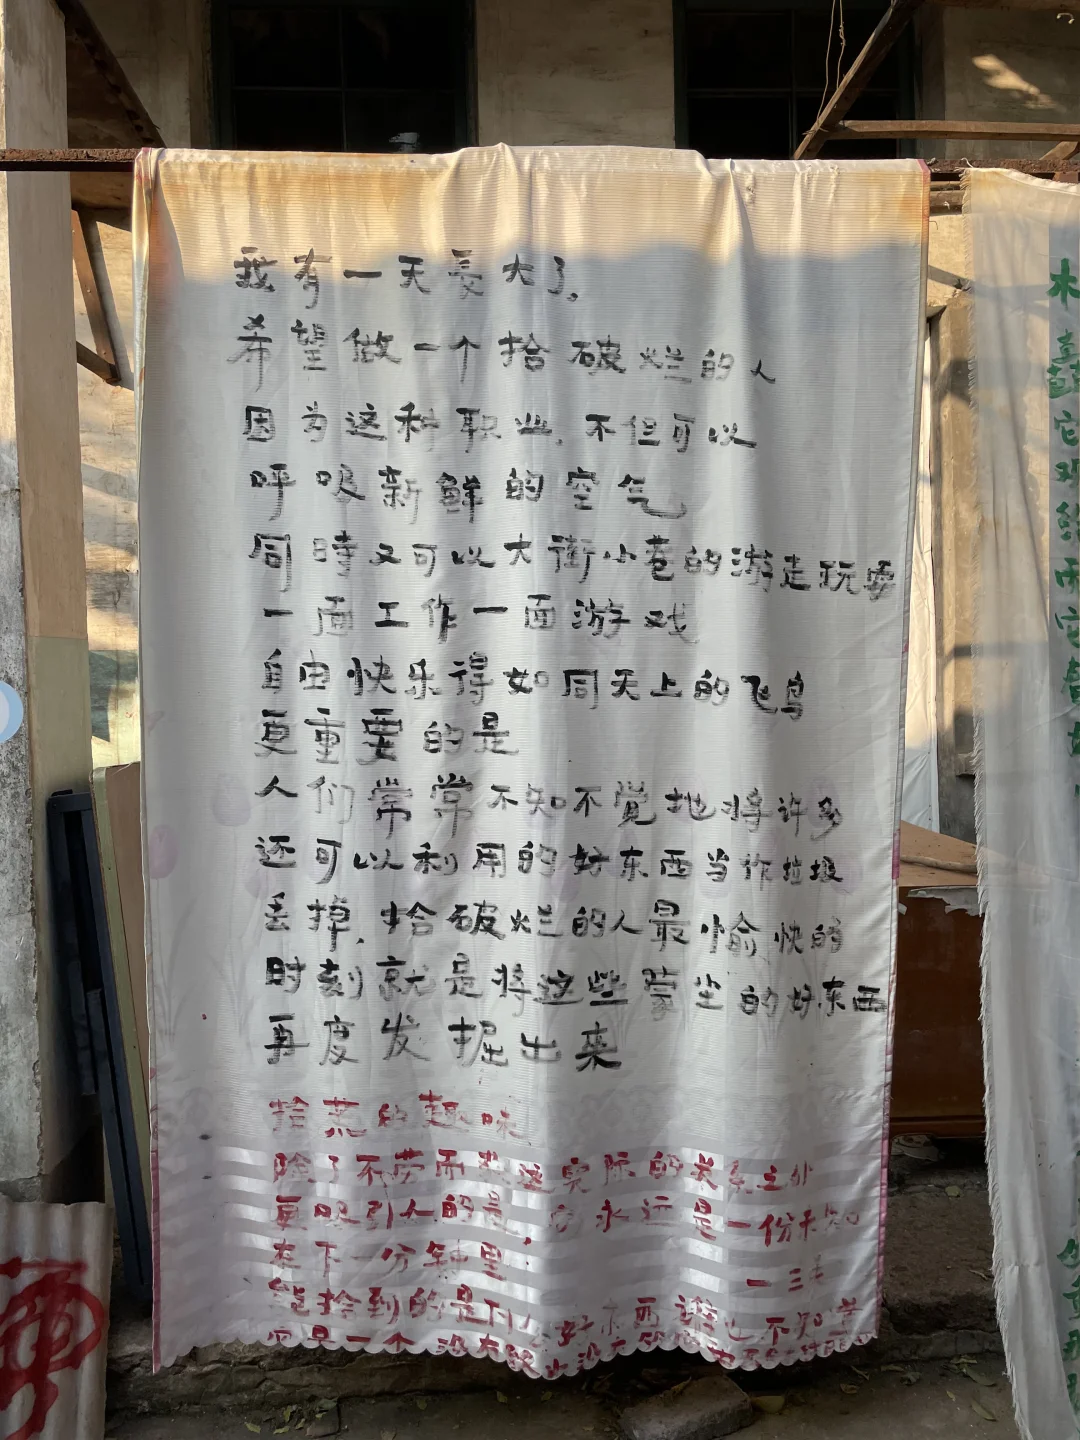 我有一天長大了,
希望做一个拾破烂的人
因为这种职业,不但可以
呼吸新鲜的空气
同時又可以大街小巷的游走玩耍
一面工作一面游戏
自由快乐得如同天上的飞鸟
更重要的是
人们常常不知不觉地将许多
还可以利用的好东西当作垃圾
丢掉,拾破烂的人最愉快的
时刻就是将这些蒙尘的好东西
再度发掘出来
拾荒的趣味
除了不劳而获这实际的关系之外
更吸引人的是,它永远是一份未知
在下一分钟里
一三毛
能拾到的是什么好东西谁也不知道
它是一个没有
木
它